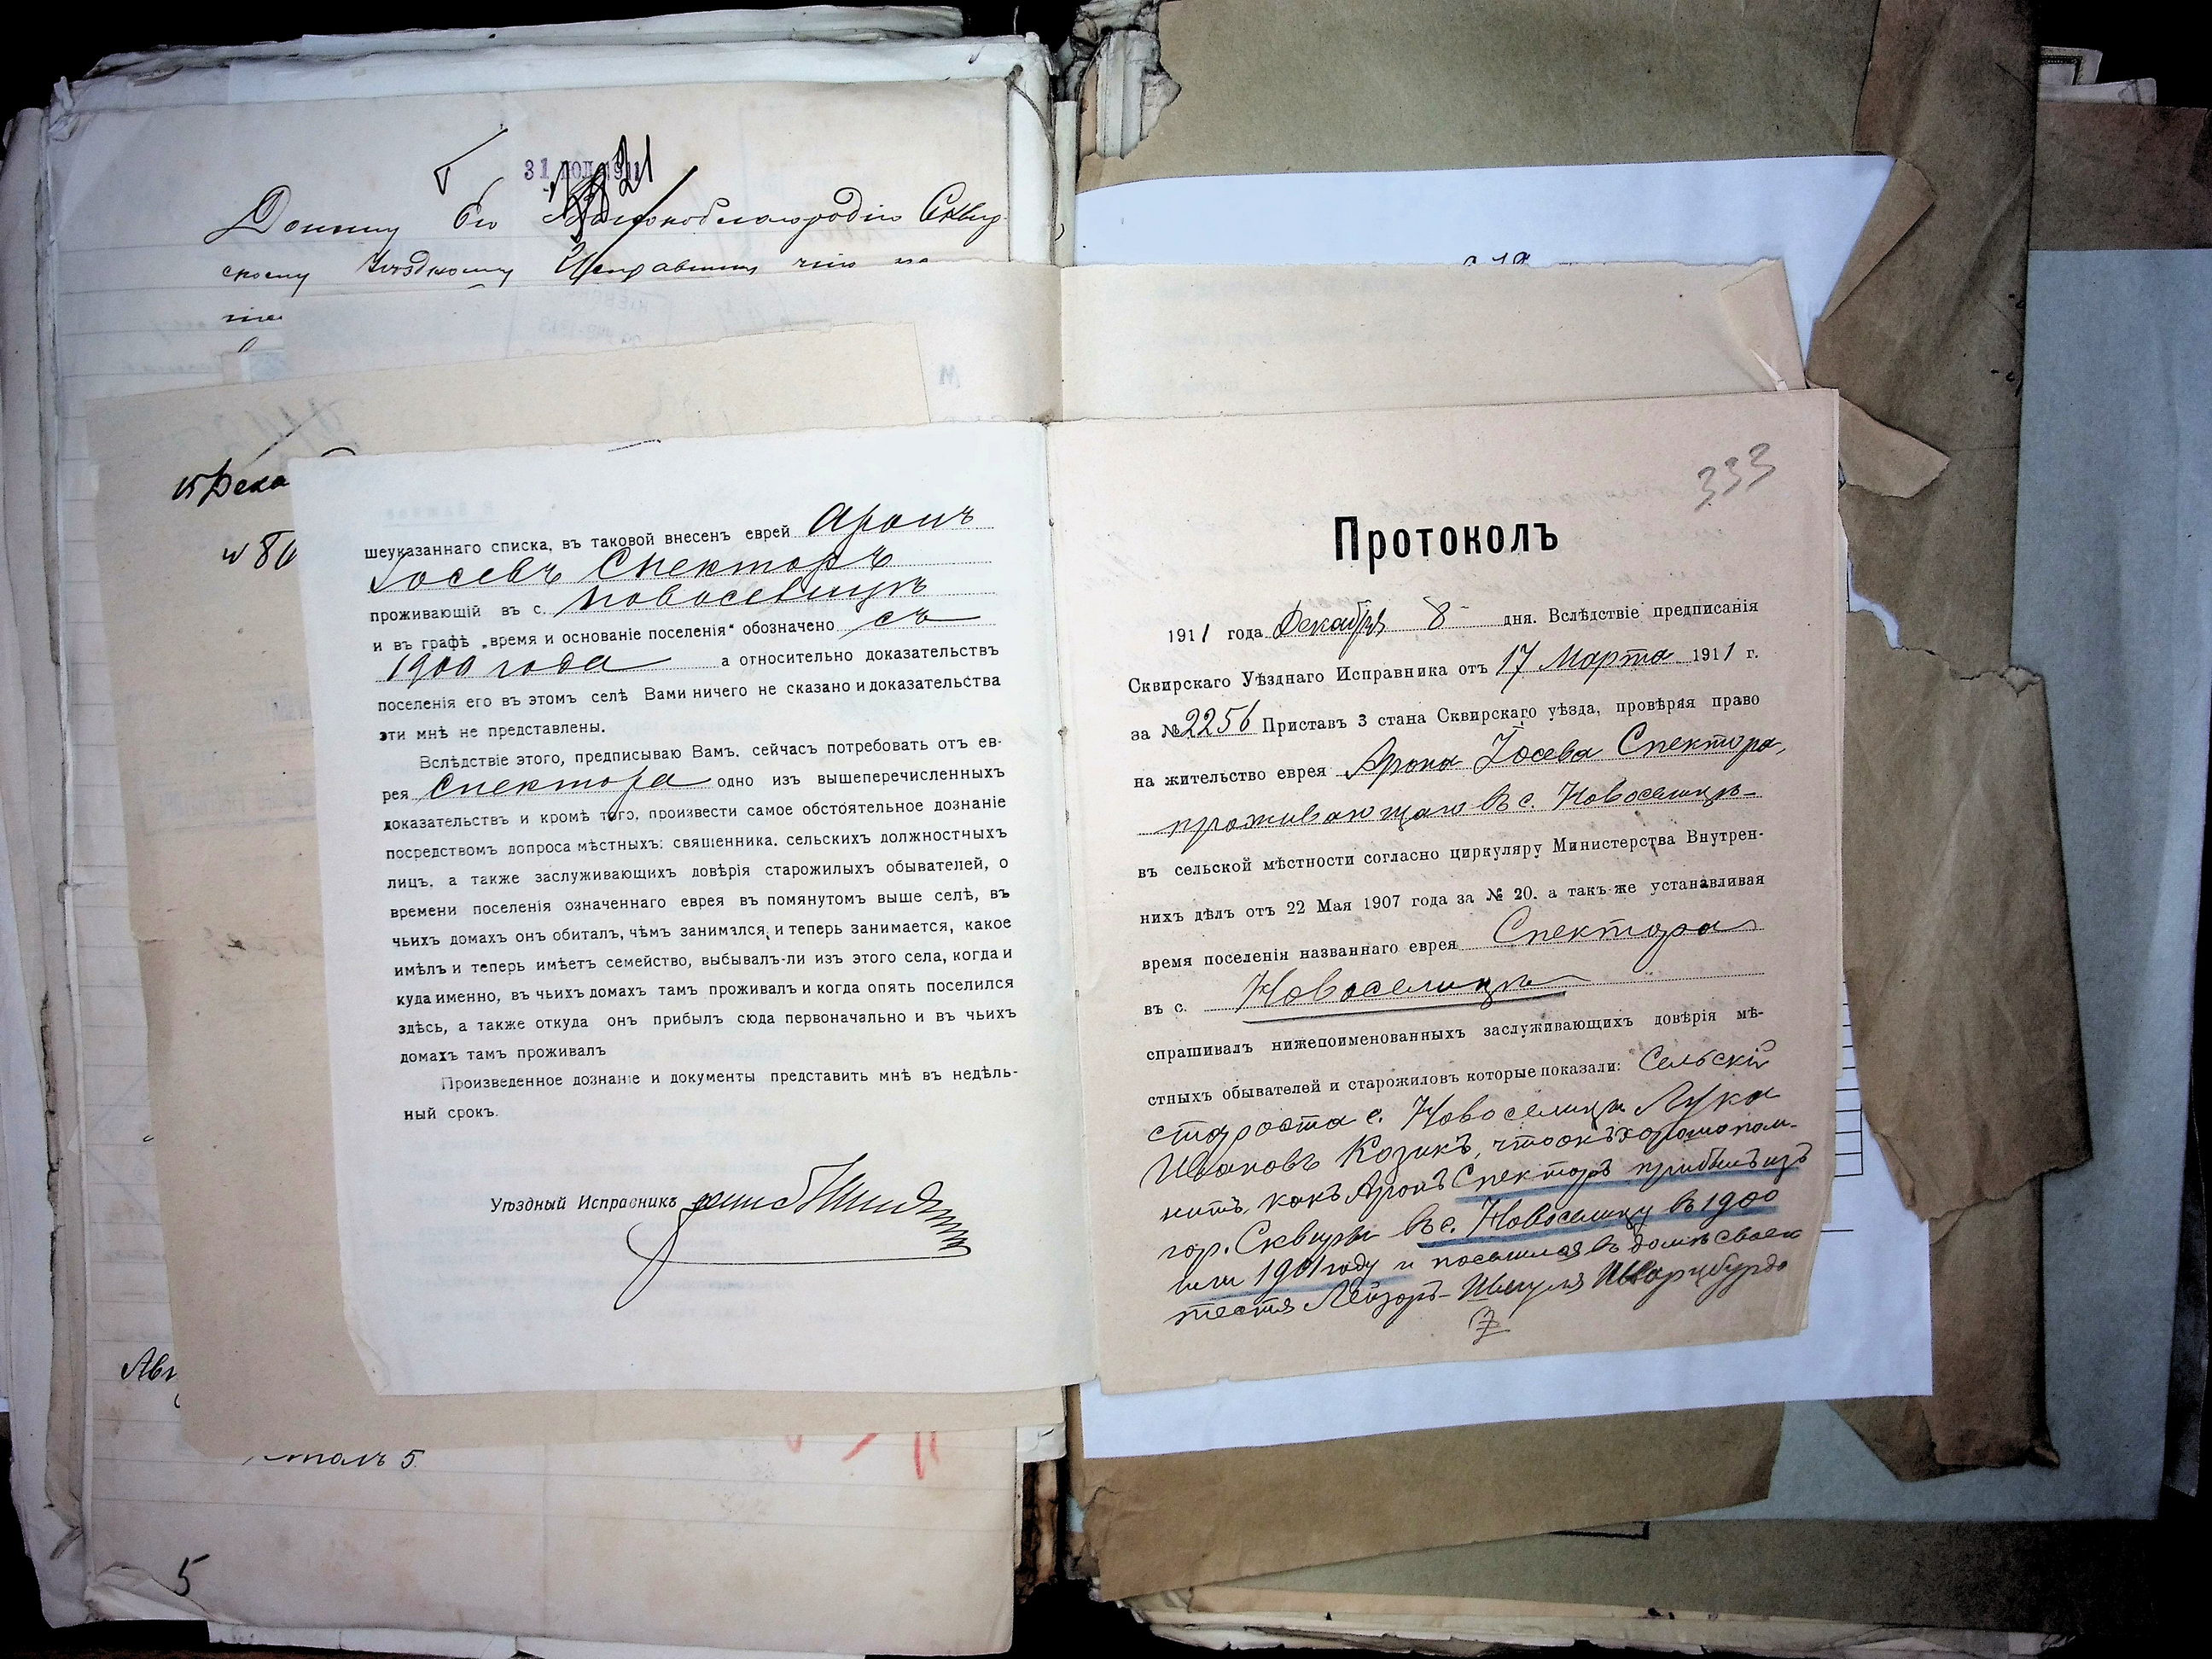 31
Доношу Его Высокоблагородію Сквир-
скому Уѣздному Исправнику что
15 Дека
5
шеуказаннаго списка, въ таковой внесенъ еврей Аронъ
Іосевъ Спекторъ
проживающій въ с. Новоселицѣ
и въ графѣ „время и основаніе поселенія“ обозначено съ
1900 года а относительно доказательствъ
поселенія его въ этомъ селѣ Вами ничего не сказано и доказательства
эти мнѣ не представлены.
Вслѣдствіе этого, предписываю Вамъ. сейчасъ потребовать отъ ев-
рея Спектора одно изъ вышеперечисленныхъ
доказательствъ и кромѣ того, произвести самое обстоятельное дознаніе
посредствомъ допроса мѣстныхъ: священника. сельскихъ должностныхъ
лицъ. а также заслуживающихъ довѣрія старожилыхъ обывателей, о
времени поселенія означеннаго еврея въ помянутомъ выше селѣ, въ
чьихъ домахъ онъ обиталъ, чѣмъ занимался, и теперь занимается, какое
имѣлъ и теперь имѣетъ семейство, выбывалъ-ли изъ этого села, когда и
куда именно, въ чьихъ домахъ тамъ проживалъ и когда опять поселился
здѣсь, а также откуда онъ прибылъ сюда первоначально и въ чьихъ
домахъ тамъ проживалъ
Произведенное дознаніе и документы представить мнѣ въ недѣль-
ный срокъ.
Уѣздный Исправникъ
333
Протоколъ
1911 года Декабря 8 дня. Вслѣдствіе предписанія
Сквирскаго Уѣзднаго Исправника отъ 17 Марта 1911 г.
за № 2256 Приставъ 3 стана Сквирскаго уѣзда, провѣряя право
на жительство еврея Арона Іосева Спектора,
проживающаго въ с. Новоселицѣ
въ сельской мѣстности согласно циркуляру Министерства Внутрен-
нихъ дѣлъ отъ 22 Мая 1907 года за № 20. а такъ-же устанавливая
время поселенія названнаго еврея Спектора
въ с. Новоселицѣ
спрашивалъ нижепоименованныхъ заслуживающихъ довѣрія мѣ-
стныхъ обывателей и старожиловъ которые показали: Сельскій
староста с. Новоселицы Лука
Ивановъ Козикъ, что онъ хорошо пом-
нитъ, какъ Аронъ Спекторъ прибылъ изъ
гор. Сквиры въ с. Новоселицу въ 1900
или 1901 году и поселился въ домѣ своего
тестя Лейзоръ-Шмуля Шварцбурда